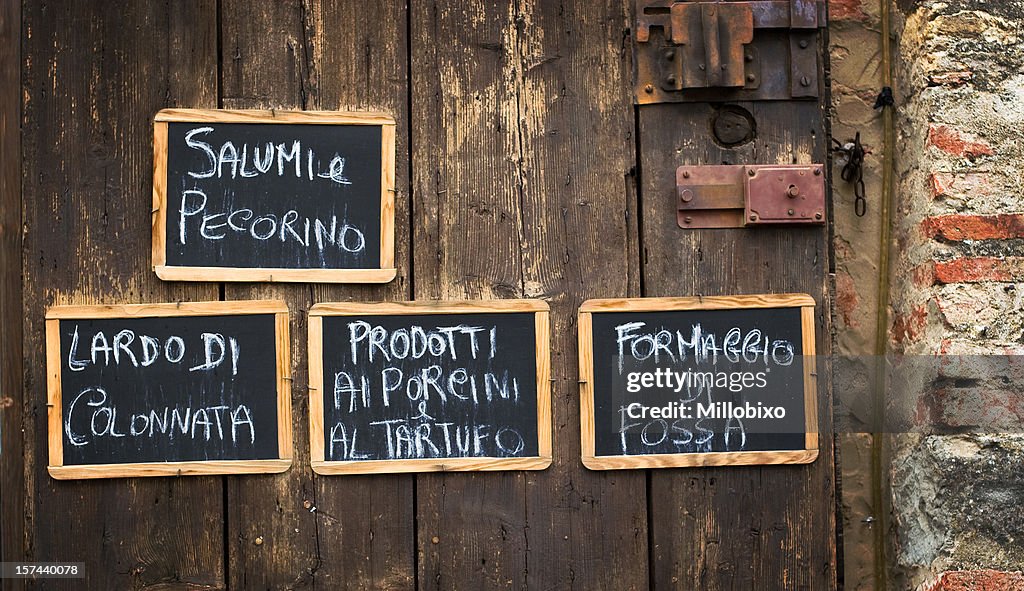 SALUMI e
PECORINO
LARDO DI
COLONNATA
PRODOTTI
AI PORCINI
e
AL TARTUFO
FORMAGGIO
DI
FOSSA
gettyimages
Credit: Millobixo
157440078